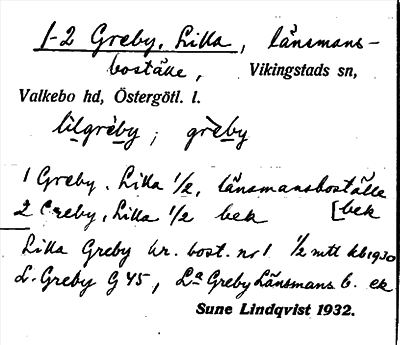 1-2 Greby, Lilla, länsmans-
boställe, Vikingstads sn,
Valkebo hd, Östergötl. l.
lilgrèby ; grèby
1 Greby, Lilla 1/2, länsmansboställe
2 Greby, Lilla 1/2 bek [bek
Lilla Greby kr. bost. nr 1 1/2 mtl kb 1930
L. Greby G 45, La Greby Länsmans b. ek
Sune Lindqvist 1932.